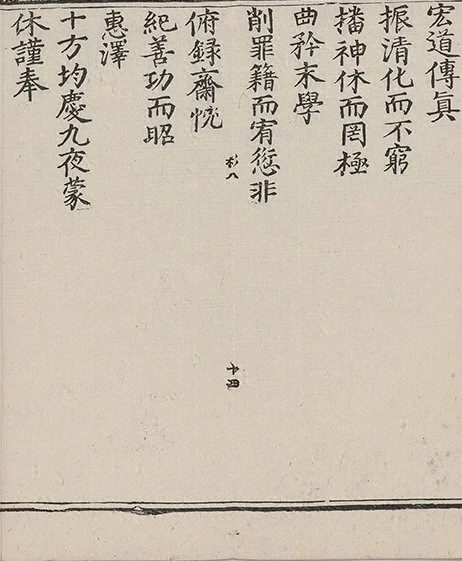 宏道傳眞
振清化而不窮
播神休而罔極
曲矜末學
削罪籍而宥愆非
杉八
十四
俯録齋悃
紀善功而昭
惠澤
十方均慶九夜蒙
休謹奉